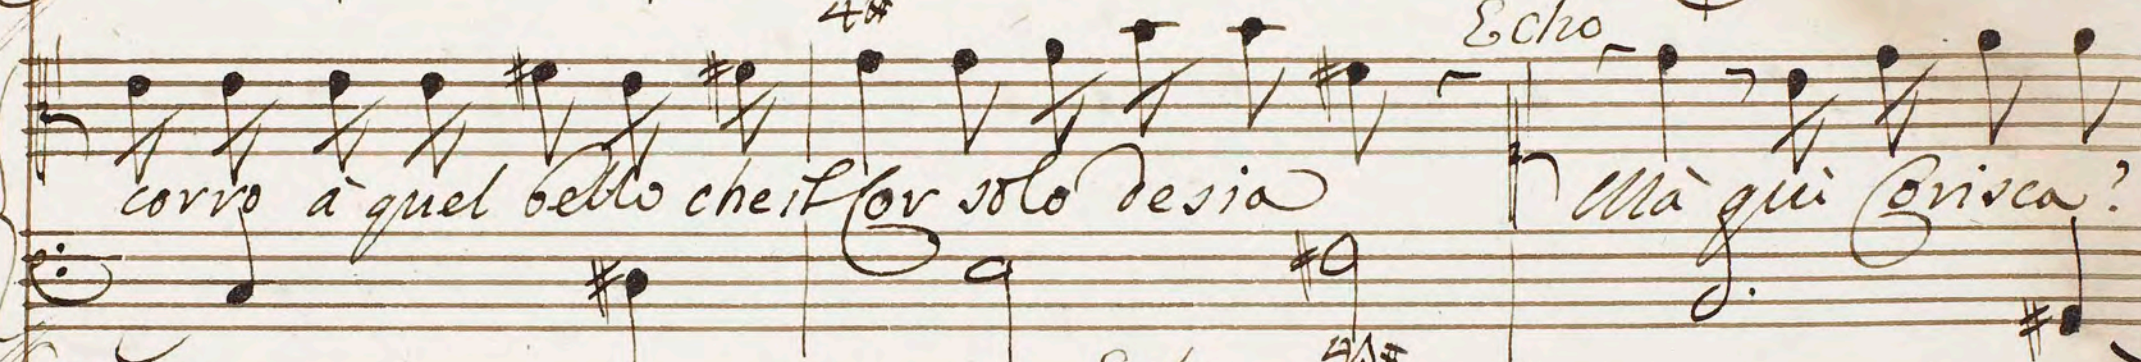 4#
Echo
corro à quel bello che il Cor solo desia Mà quì Corisca?